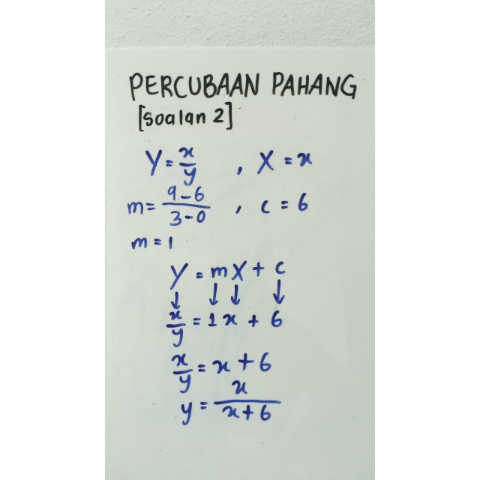 PERCUBAAN PAHANG
[Soalan 2]
Y = x/y , X = x
m = 9-6/3-0 , c = 6
m = 1
Y = mX + c
↓ ↓ ↓ ↓
x/y = 1x + 6
x/y = x + 6
y = x/x+6